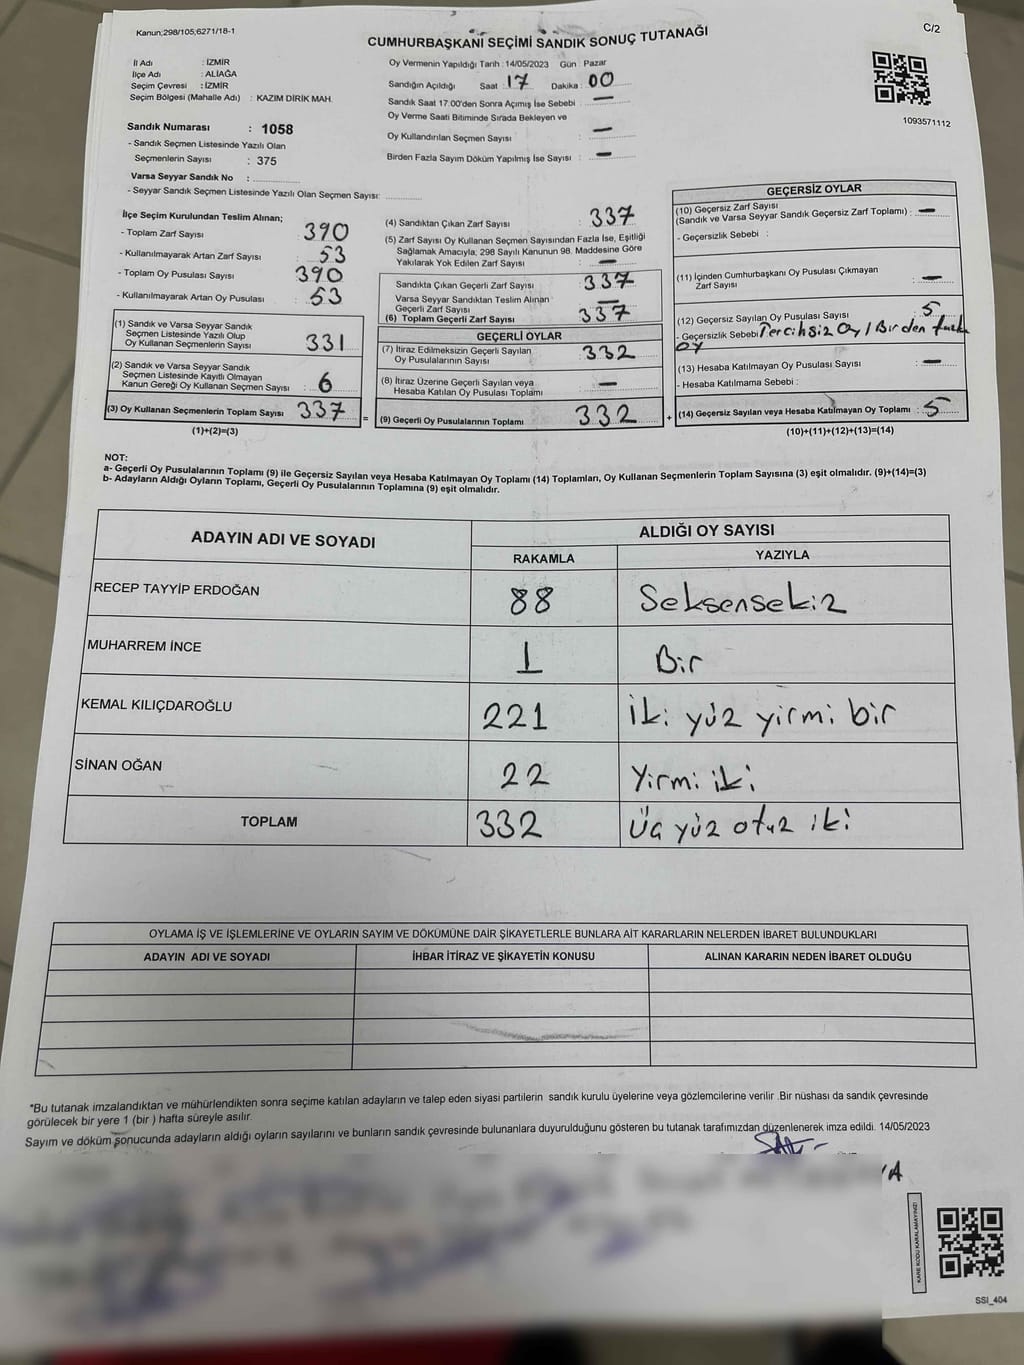 Kanun;298/105;6271/18-1
C/2
CUMHURBAŞKANI SEÇİMİ SANDIK SONUÇ TUTANAĞI
İl Adı : İZMİR
İlçe Adı : ALİAĞA
Seçim Çevresi : İZMİR
Seçim Bölgesi (Mahalle Adı) : KAZIM DİRİK MAH.
Sandık Numarası : 1058
- Sandık Seçmen Listesinde Yazılı Olan
Seçmenlerin Sayısı : 375
Varsa Seyyar Sandık No :
- Seyyar Sandık Seçmen Listesinde Yazılı Olan Seçmen Sayısı:
Oy Vermenin Yapıldığı Tarih :14/05/2023 Gün : Pazar
Sandığın Açıldığı Saat : 17 Dakika : 00
Sandık Saat 17:00'den Sonra Açımış İse Sebebi : —
Oy Verme Saati Bitiminde Sırada Bekleyen ve
Oy Kullandırılan Seçmen Sayısı : —
Birden Fazla Sayım Döküm Yapılmış İse Sayısı : —
1093571112
İlçe Seçim Kurulundan Teslim Alınan;
- Toplam Zarf Sayısı : 390
- Kullanılmayarak Artan Zarf Sayısı : 53
- Toplam Oy Pusulası Sayısı : 390
- Kullanılmayarak Artan Oy Pusulası : 53
(1) Sandık ve Varsa Seyyar Sandık
Seçmen Listesinde Yazılı Olup
Oy Kullanan Seçmenlerin Sayısı : 331
(2) Sandık ve Varsa Seyyar Sandık
Seçmen Listesinde Kayıtlı Olmayan
Kanun Gereği Oy Kullanan Seçmen Sayısı : 6
(3) Oy Kullanan Seçmenlerin Toplam Sayısı : 337 =
(1)+(2)=(3)
(4) Sandıktan Çıkan Zarf Sayısı : 337
(5) Zarf Sayısı Oy Kullanan Seçmen Sayısından Fazla İse, Eşitliği
Sağlamak Amacıyla, 298 Sayılı Kanunun 98. Maddesine Göre
Yakılarak Yok Edilen Zarf Sayısı : —
Sandıkta Çıkan Geçerli Zarf Sayısı : 337
Varsa Seyyar Sandıktan Teslim Alınan
Geçerli Zarf Sayısı : —
(6) Toplam Geçerli Zarf Sayısı : 337
GEÇERLİ OYLAR
(7) İtiraz Edilmeksizin Geçerli Sayılan
Oy Pusulalarının Sayısı : 332
(8) İtiraz Üzerine Geçerli Sayılan veya
Hesaba Katılan Oy Pusulası Toplamı : —
(9) Geçerli Oy Pusulalarının Toplamı : 332 +
GEÇERSİZ OYLAR
(10) Geçersiz Zarf Sayısı
(Sandık ve Varsa Seyyar Sandık Geçersiz Zarf Toplamı) : —
- Geçersizlik Sebebi :
(11) İçinden Cumhurbaşkanı Oy Pusulası Çıkmayan
Zarf Sayısı : —
(12) Geçersiz Sayılan Oy Pusulası Sayısı : 5
- Geçersizlik Sebebi : Tercihsiz Oy / Birden fazla
oy
(13) Hesaba Katılmayan Oy Pusulası Sayısı : —
- Hesaba Katılmama Sebebi :
(14) Geçersiz Sayılan veya Hesaba Katılmayan Oy Toplamı : 5
(10)+(11)+(12)+(13)=(14)
NOT:
a- Geçerli Oy Pusulalarının Toplamı (9) ile Geçersiz Sayılan veya Hesaba Katılmayan Oy Toplamı (14) Toplamları, Oy Kullanan Seçmenlerin Toplam Sayısına (3) eşit olmalıdır. (9)+(14)=(3)
b- Adayların Aldığı Oyların Toplamı, Geçerli Oy Pusulalarının Toplamına (9) eşit olmalıdır.
ADAYIN ADI VE SOYADI ALDIĞI OY SAYISI
RAKAMLA YAZIYLA
RECEP TAYYİP ERDOĞAN 88 Seksensekiz
MUHARREM İNCE 1 Bir
KEMAL KILIÇDAROĞLU 221 iki yüz yirmi bir
SİNAN OĞAN 22 Yirmi iki
TOPLAM 332 Üç yüz otuz iki
OYLAMA İŞ VE İŞLEMLERİNE VE OYLARIN SAYIM VE DÖKÜMÜNE DAİR ŞİKAYETLERLE BUNLARA AİT KARARLARIN NELERDEN İBARET BULUNDUKLARI
ADAYIN ADI VE SOYADI İHBAR İTİRAZ VE ŞİKAYETİN KONUSU ALINAN KARARIN NEDEN İBARET OLDUĞU
*Bu tutanak imzalandıktan ve mühürlendikten sonra seçime katılan adayların ve talep eden siyasi partilerin sandık kurulu üyelerine veya gözlemcilerine verilir .Bir nüshası da sandık çevresinde
görülecek bir yere 1 (bir ) hafta süreyle asılır.
Sayım ve döküm sonucunda adayların aldığı oyların sayılarını ve bunların sandık çevresinde bulunanlara duyurulduğunu gösteren bu tutanak tarafımızdan düzenlenerek imza edildi. 14/05/2023
KARE KODU KARALAMAYINIZ!
SSI_404